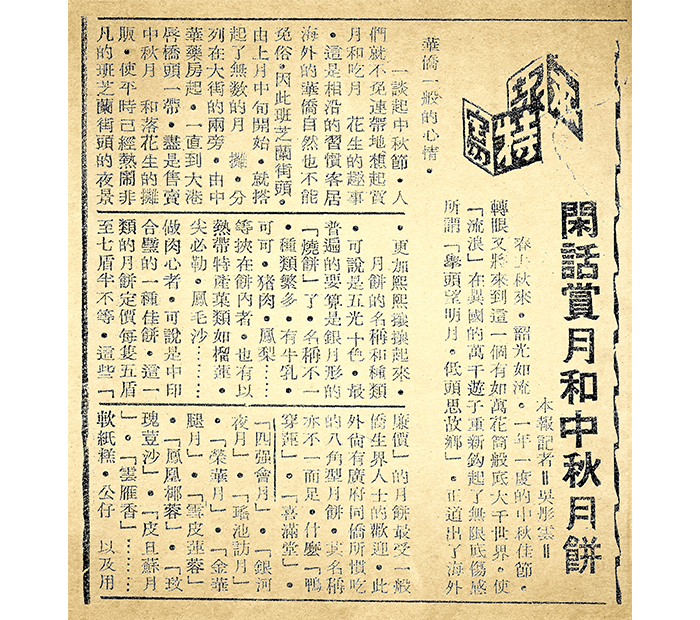 特寫
閑話賞月和中秋月餅
本報記者＝吳彤雲＝
春去秋來，韶光如流。一年一度的中秋佳節，
轉眼又將來到這一個有如萬花筒般底大千世界，使
「流浪」在異國的萬千遊子重新鈎起了無限底傷感
所謂「舉頭望明月，低頭思故鄉」，正道出了海外
華僑一般的心情。
一談起中秋節，人
們就不免連帶地想起賞
月和吃月 花生的趣事
。這是相沿的習慣客居
海外的華僑自然也不能
免俗。因此班芝蘭街頭，
由上月中旬開始，就搭
起了無數的月 攤，分
列在大街的兩旁。由中
華藥房起，一直到大港
唇橋頭一帶，盡是售賣
中秋月 和落花生的攤
販，使平時已經熱鬧非
凡的班芝蘭街頭的夜景
，更加熙熙攘攘起來。
月餅的名稱和種類
，可說是五光十色。最
普遍的要算是銀月形的
「燒餅」了。名稱不一
，種類繁多，有牛乳，
可可，猪肉，鳳梨……
等挾在餅內者，也有以
熱帶特產菓類如榴蓮，
尖必勒，鳳毛沙………
做肉心者，可說是中印
合璧的一種佳餅，這一
類的月餅定價每隻五盾
至七盾半不等。這些「
廉價」的月餅最受一般
僑生界人士的歡迎。此
外倘有廣府同僑所慣吃
的八角型月餅，其名稱
亦不一而足，什麼「鴨
穿蓮」，「喜滿堂」，
「四强會月」，「銀河
夜月」，「瑤池訪月」
，「榮華月」，「金華
腿月」，「雪皮蓮蓉」
，「鳳凰椰蓉」，「玫
瑰荳沙」，「皮旦蘇月
」，「雲雁香」………
軟紙糕，公仔 以及用